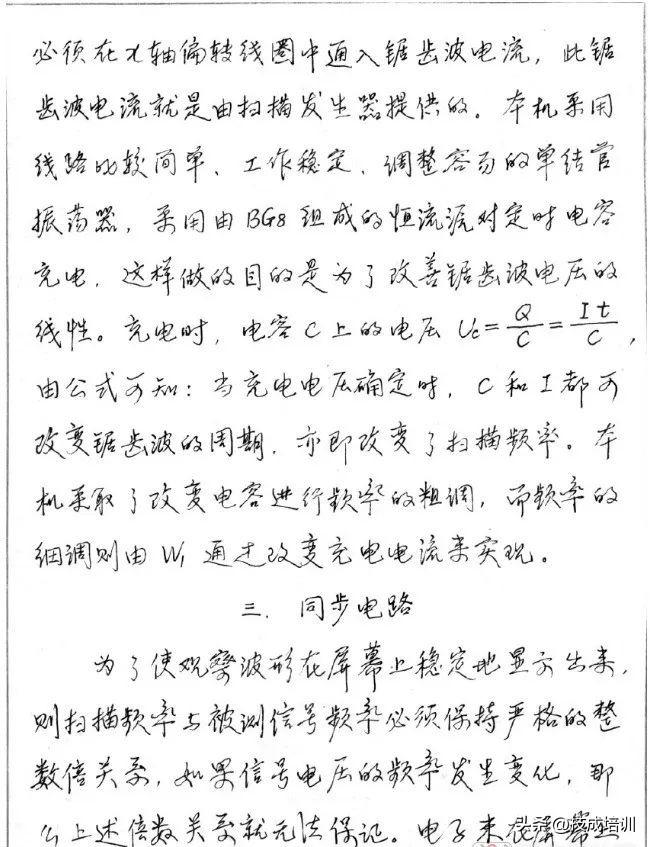 必须在x轴偏转线圈中通入锯齿波电流，此锯
齿波电流就是由扫描发生器提供的。本机采用
线路比较简单、工作稳定、调整容易的单结管
振荡器，采用由BG8组成的恒流源对定时电容
充电，这样做的目的是为了改善锯齿波电压的
线性。充电时，电容C上的电压 Uc=Q/C=It/C，
由公式可知：当充电电压确定时，C和I都可
改变锯齿波的周期，亦即改变了扫描频率。本
机采取了改变电容进行频率的粗调，而频率的
细调则由W1通过改变充电电流来实现。
三、同步电路
为了使观察波形在屏幕上稳定地显示出来，
则扫描频率与被测信号频率必须保持严格的整
数倍关系，如果信号电压的频率发生变化，那
么上述倍数关系就无法保证。电子束在屏幕上
头条@技成培训